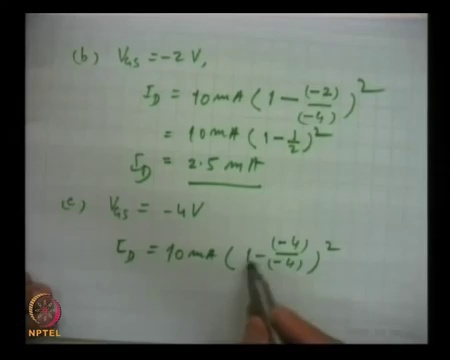 (b) V_GS = -2 V,
I_D = 10 mA (1 - (-2)/(-4))^2
= 10 mA (1 - 1/2)^2
I_D = 2.5 mA
(c) V_GS = -4V
I_D = 10 mA (1 - (-4)/(-4))^2
NPTEL